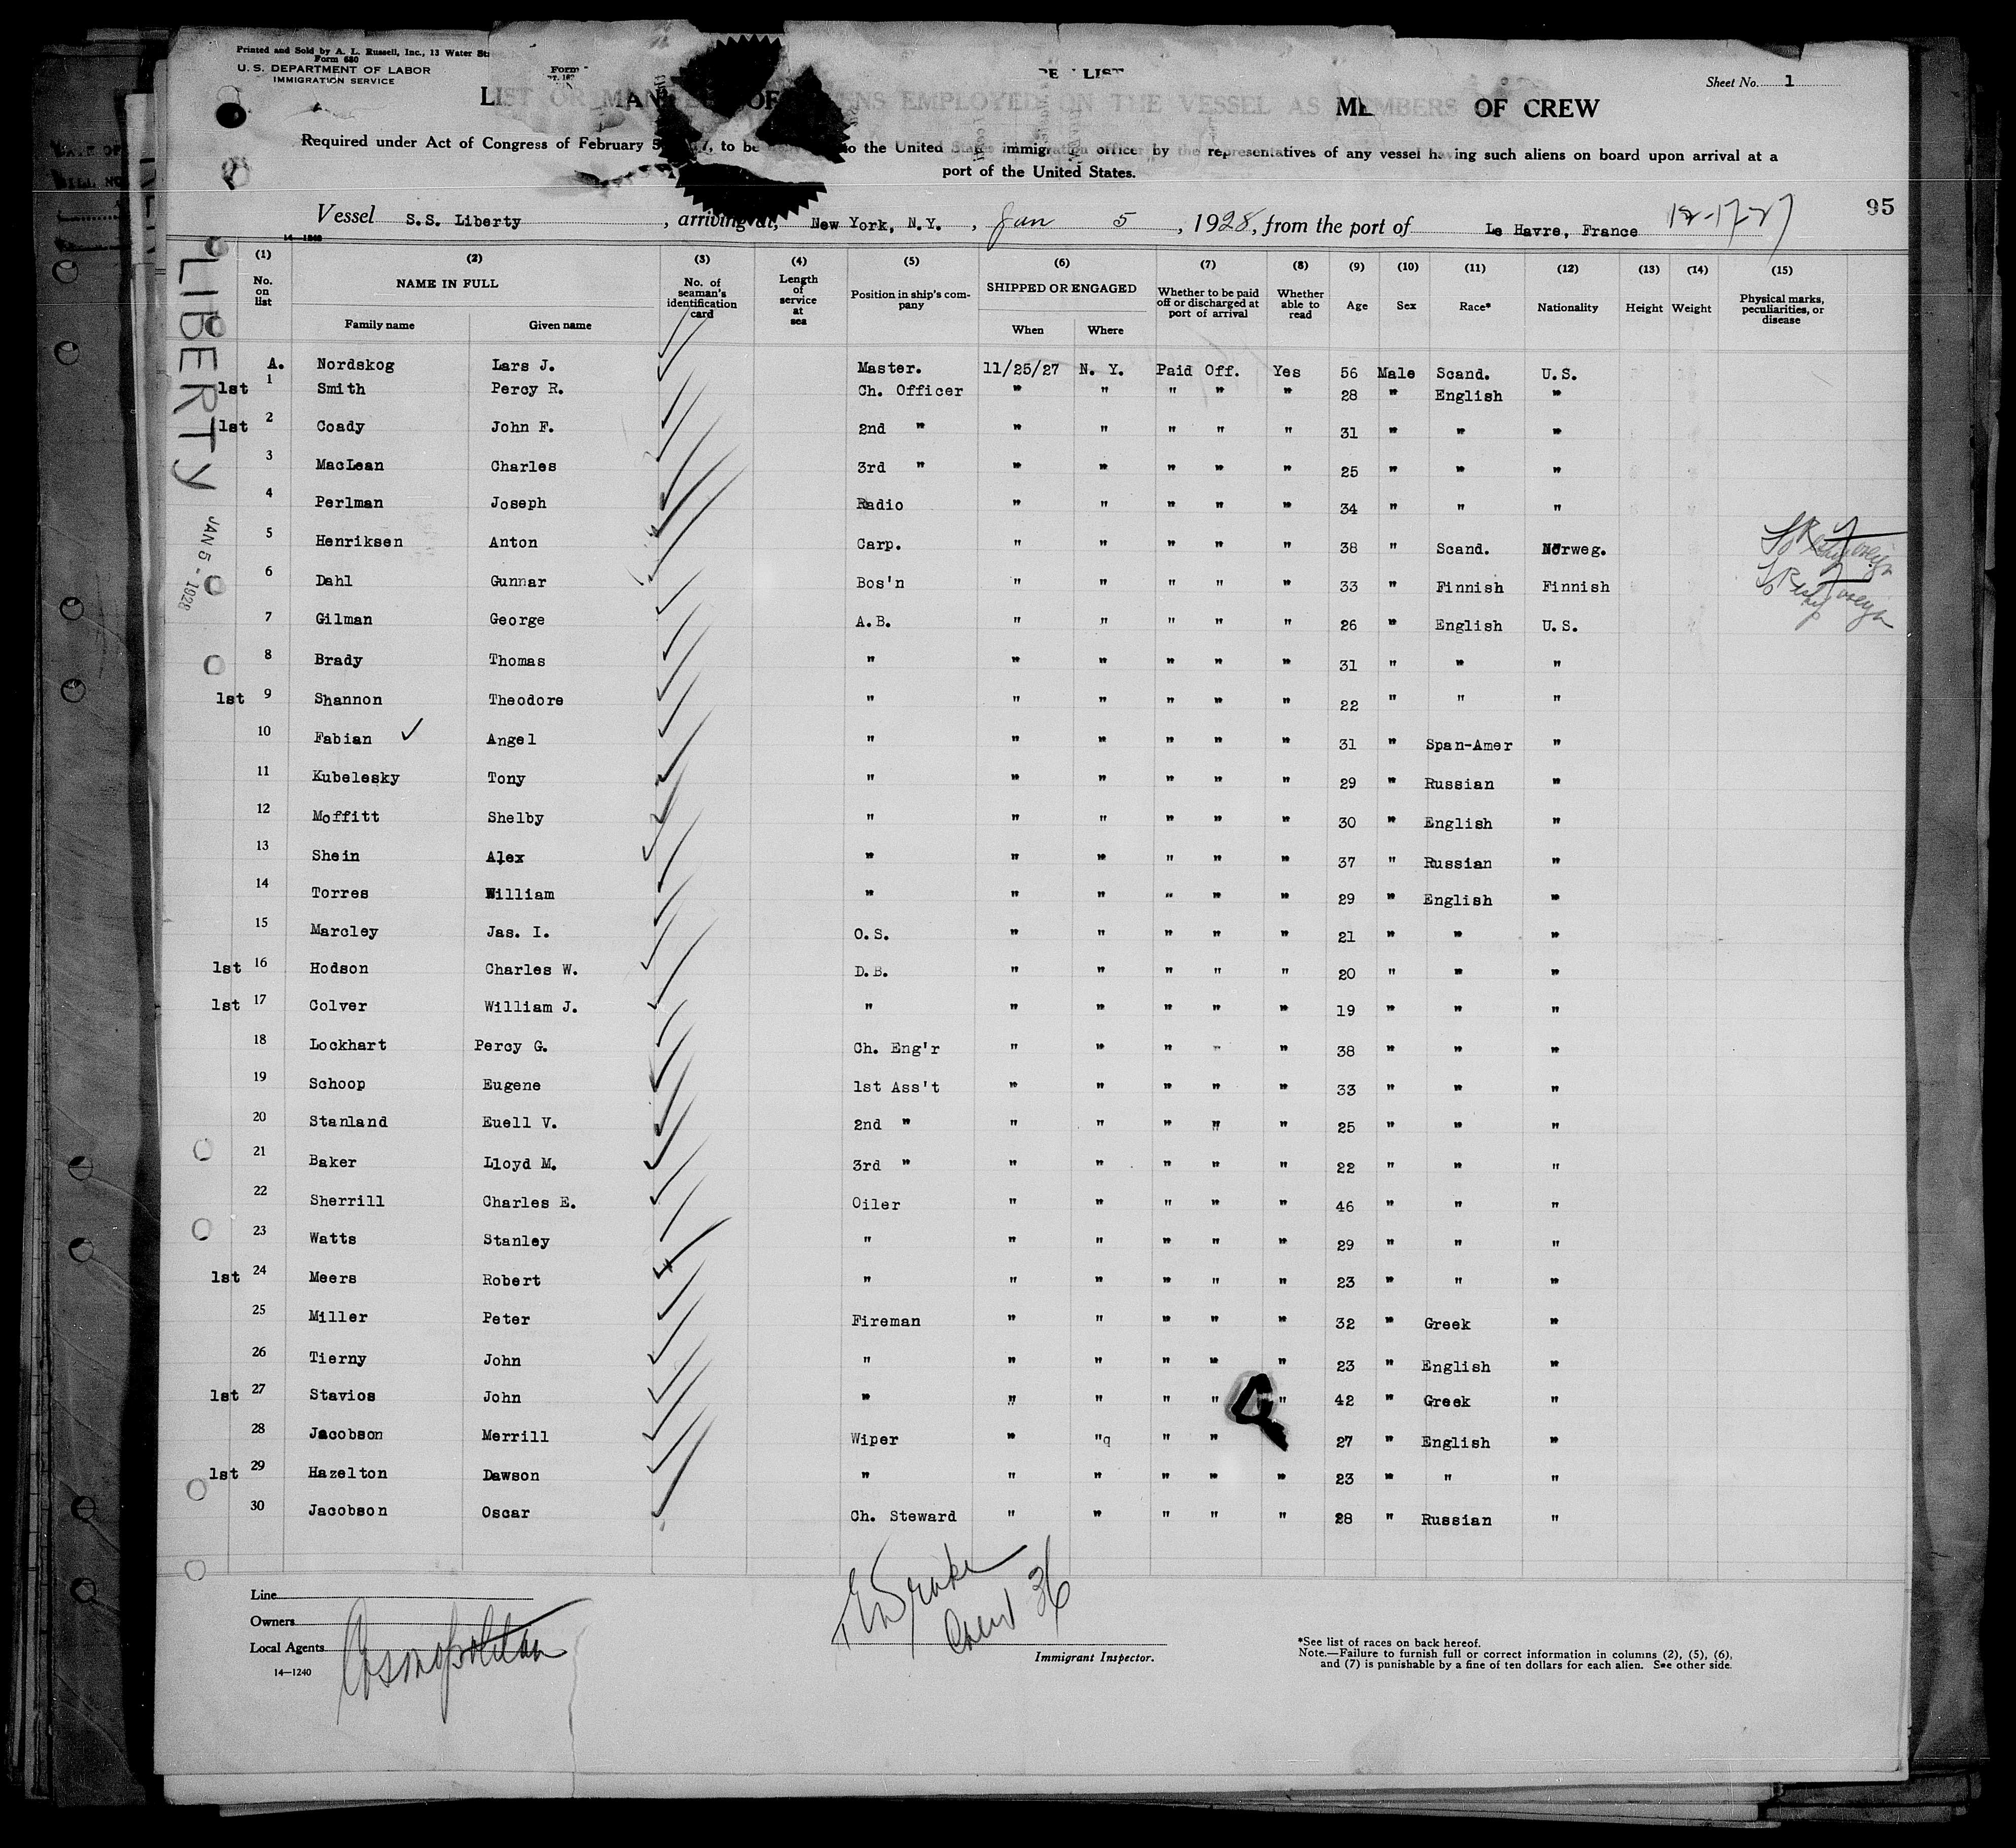 Printed and Sold by A. L. Russell, Inc., 13 Water
Form 680
U. S. DEPARTMENT OF LABOR
IMMIGRATION SERVICE
Form
LIST
Sheet No. 1
LIST OR MAN OF EMPLOYED ON THE VESSEL AS MEMBERS OF CREW
Required under Act of Congress of February 5, to be to the United States immigration officer by the representatives of any vessel having such aliens on board upon arrival at a
port of the United States.
95
Vessel S.S. Liberty, arriving at, New York, N.Y., Jan 5, 1928, from the port of Le Havre, France 12-17-27
14—1240
LIBERTY
JAN 5 - 1928
(1) (2) (3) (4) (5) (6) (7) (8) (9) (10) (11) (12) (13) (14) (15)
No. on list NAME IN FULL Family name Given name No. of seaman's identification card Length of service at sea Position in ship's company SHIPPED OR ENGAGED When Where Whether to be paid off or discharged at port of arrival Whether able to read Age Sex Race* Nationality Height Weight Physical marks, peculiarities, or disease
A. Nordskog Lars J. Master. 11/25/27 N. Y. Paid Off. Yes 56 Male Scand. U.S.
1st 1 Smith Percy R. Ch. Officer " " " " " 28 " English "
1st 2 Coady John F. 2nd " " " " " " 31 " " "
3 MacLean Charles 3rd " " " " " " 25 " " "
4 Perlman Joseph Radio " " " " " 34 " " "
5 Henriksen Anton Carp. " " " " " 38 " Scand. Norweg.
6 Dahl Gunnar Bos'n " " " " " 33 " Finnish Finnish
7 Gilman George A.B. " " " " " 26 " English U.S.
8 Brady Thomas " " " " " " 31 " " "
1st 9 Shannon Theodore " " " " " " 22 " " "
10 Fabian ✓ Angel " " " " " " 31 " Span-Amer "
11 Kubelesky Tony " " " " " " 29 " Russian "
12 Moffitt Shelby " " " " " " 30 " English "
13 Shein Alex " " " " " " 37 " Russian "
14 Torres William " " " " " " 29 " English "
15 Marcley Jas. I. O.S. " " " " " 21 " " "
1st 16 Hodson Charles W. D.B. " " " " " 20 " " "
1st 17 Colver William J. " " " " " " 19 " " "
18 Lockhart Percy G. Ch. Eng'r " " " " " 38 " " "
19 Schoop Eugene 1st Ass't " " " " " 33 " " "
20 Stanland Euell V. 2nd " " " " " " 25 " " "
21 Baker Lloyd M. 3rd " " " " " " 22 " " "
22 Sherrill Charles E. Oiler " " " " " 46 " " "
23 Watts Stanley " " " " " " 29 " " "
1st 24 Meers Robert " " " " " " 23 " " "
25 Miller Peter Fireman " " " " " 32 " Greek "
26 Tierny John " " " " " " 23 " English "
1st 27 Stavios John " " " " " " 42 " Greek "
28 Jacobson Merrill Wiper " "q " " 27 " English "
1st 29 Hazelton Dawson " " " " " " 23 " " "
30 Jacobson Oscar Ch. Steward " " " " " 28 " Russian "
Line
Owners
Local Agents Cosmopolitan
14—1240
Drake
Crew 36
Immigrant Inspector.
*See list of races on back hereof.
Note.—Failure to furnish full or correct information in columns (2), (5), (6),
and (7) is punishable by a fine of ten dollars for each alien. See other side.